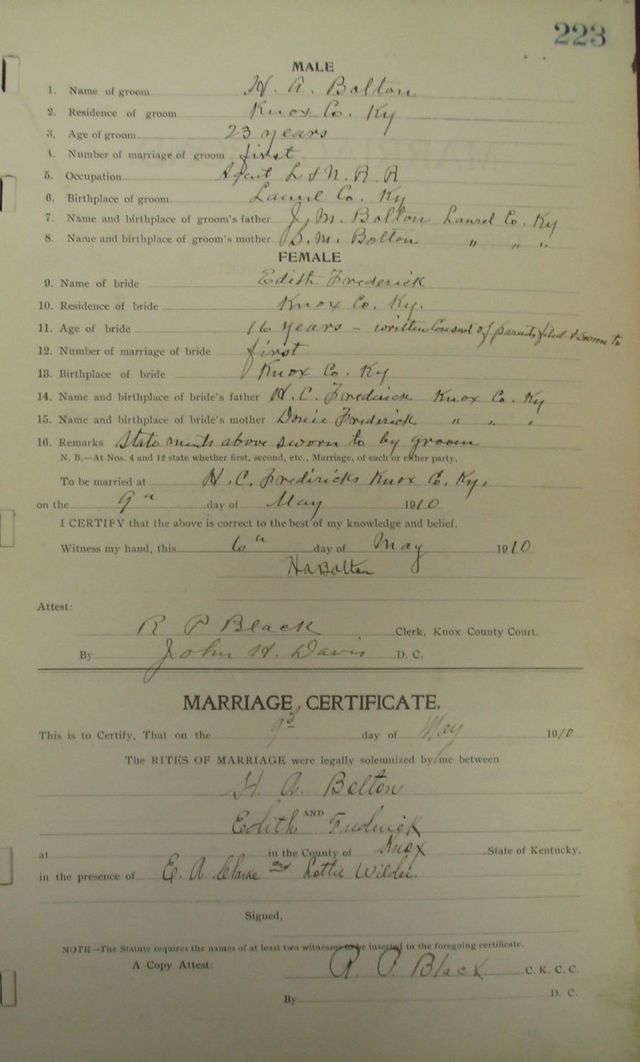 223
MALE
1. Name of groom H. A. Bolton
2. Residence of groom Knox Co. Ky
3. Age of groom 23 years
4. Number of marriage of groom first
5. Occupation Agent L & N. R R
6. Birthplace of groom Laurel Co. Ky
7. Name and birthplace of groom's father J. M. Bolton Laurel Co. Ky
8. Name and birthplace of groom's mother S. M. Bolton " " "
FEMALE
9. Name of bride Edith Frederick
10. Residence of bride Knox Co. Ky.
11. Age of bride 16 years - written Consent of parents filed & sworn to
12. Number of marriage of bride first
13. Birthplace of bride Knox Co. Ky
14. Name and birthplace of bride's father H. C. Frederick Knox Co. Ky
15. Name and birthplace of bride's mother Frederick " " "
16. Remarks Statements above sworn to by groom
N. B.—At Nos. 4 and 12 state whether first, second, etc., Marriage, of each or either party.
To be married at H. C. Fredericks Knox Co. Ky.
on the 9" day of May 1910
I CERTIFY that the above is correct to the best of my knowledge and belief.
Witness my hand, this 6" day of May 1910
H A Bolton
Attest:
R P Black Clerk, Knox County Court.
By John H. Davis D. C.
MARRIAGE CERTIFICATE.
This is to Certify, That on the 9th day of May 1910
The RITES OF MARRIAGE were legally solemnized by me between
H. A. Bolton
AND
Edith Frederick
at in the County of Knox State of Kentucky,
in the presence of E. A. and Lottie Wilder.
Signed,
NOTE—The Statute requires the names of at least two witnesses to be inserted in the foregoing certificate.
A Copy Attest: R. P. Black C. K. C. C.
By D. C.